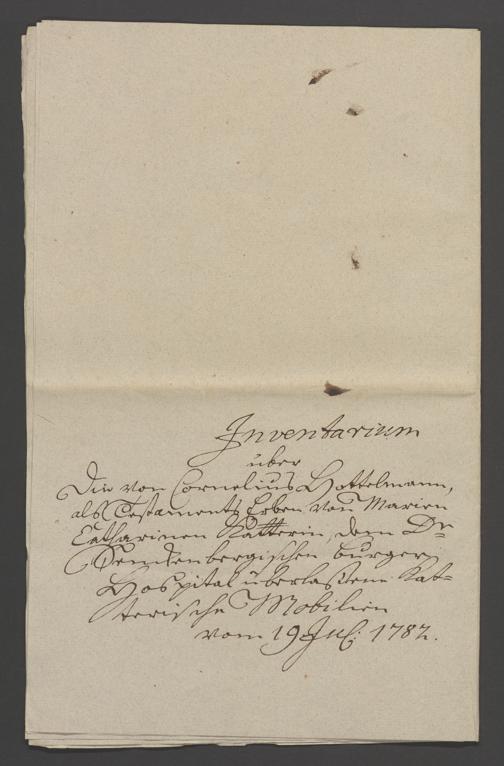 Inventarium
über
Die von Cornelius Hottelmann,
als Testaments Erben von Marien
Catharinen Katterin, dem Dr
Senckenbergischen Burger
Hospital überlaßene Kat-
terische Mobilien
vom 19. Jul: 1782.